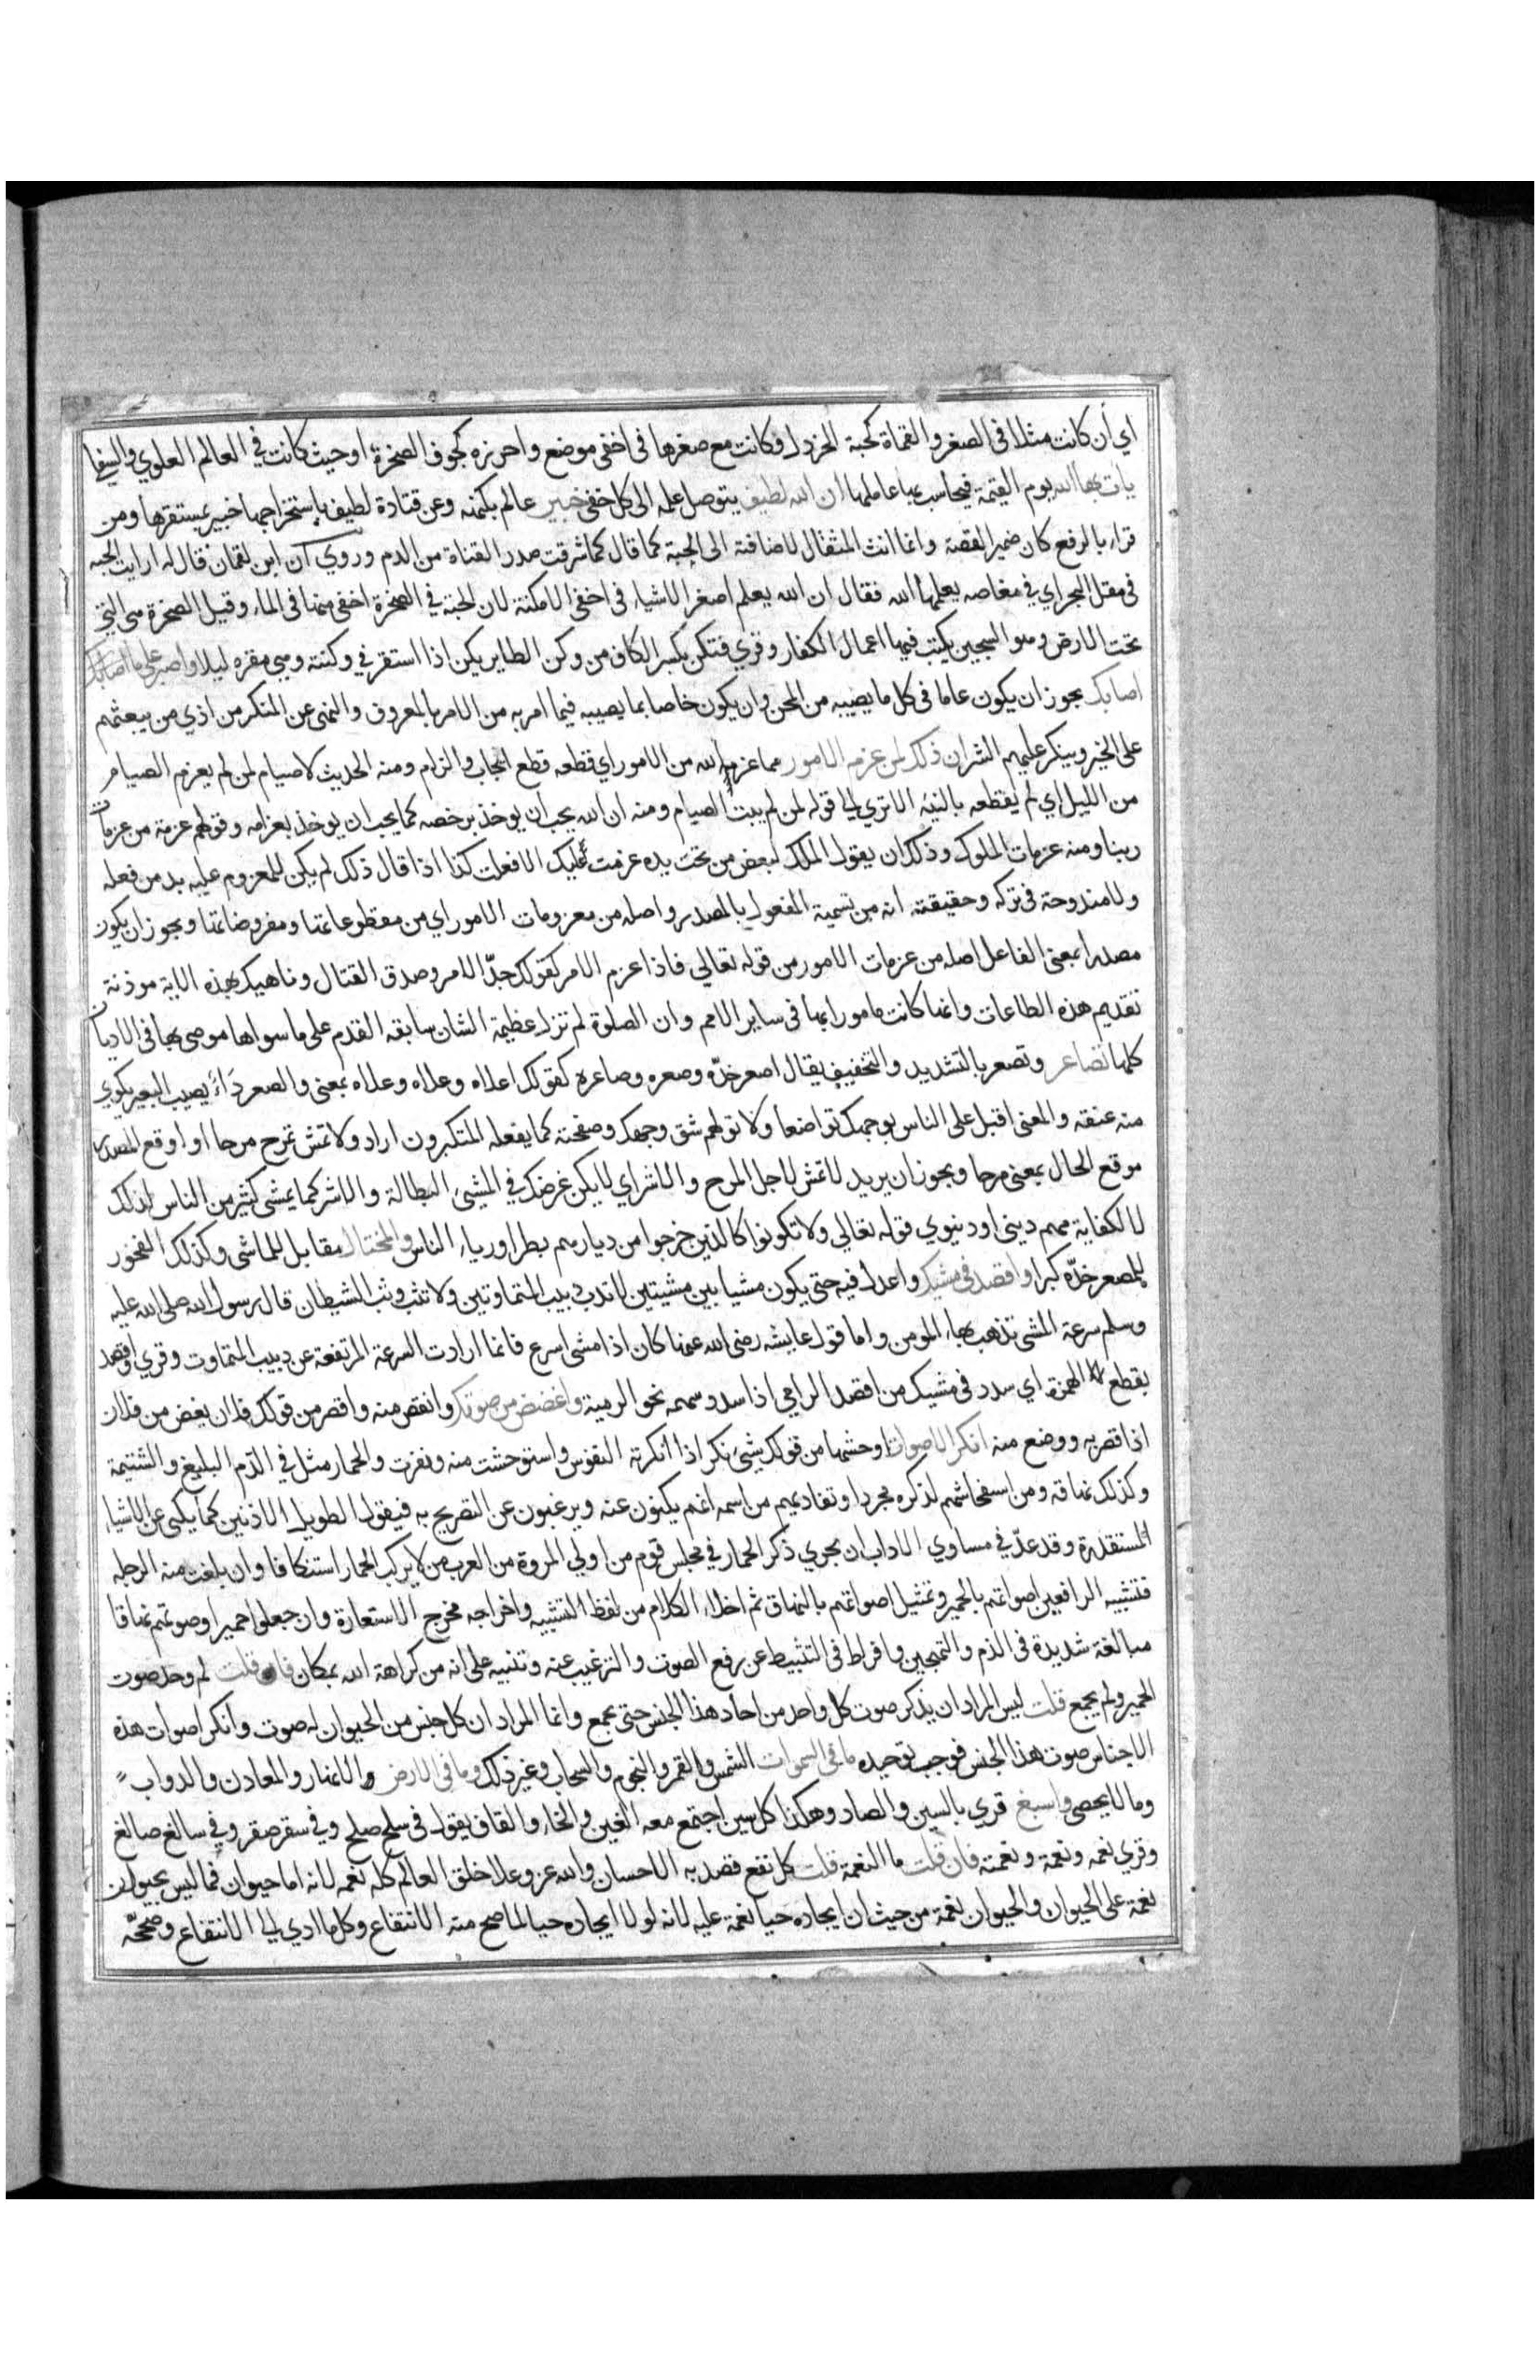 اي أن كانت مثلا فى الصغر والقماة كحبة الخردل فكانت مع صغرها فى اخفى موضع واحرزه كجوف الصخرة او حيث كانت في العالم العلوي والسفلى
يات بها الله يوم القيمة فيحاسب بها عاملها ان الله لطيف يتوصل علمه الى كل خفى خبير عالم بكنهه وعن قتادة لطيف باستخراجها خبير بمستقرها ومن
قراء بالرفع كان ضمير القصة وانما انث المثقال لاضافته الى الحبة كما قال كما شرقت صدر القناة من الدم وروي ان ابن لقمان قال له ارايت الحبه
فى مقل البحر اي في مغاصه يعلمها الله فقال ان الله يعلم اصغر الاشياء فى اخفى الامكنة لان الحبة في الصخرة اخفى منها فى الماء وقيل الصخرة هى التي
تحت الارض وهو السجين يكتب فيها اعمال الكفار وقري فتكن بكسر الكاف من وكن الطاير يكن اذا استقر في وكنته وهي مقره ليلا واصبر على ما اصابك
اصابك يجوز ان يكون عاما فى كل ما يصيبه من المحن وان يكون خاصا بما يصيبه فيما امر به من الامر بالمعروف والنهى عن المنكر من اذي من يبعثهم
على الخير وينكر عليهم الشر ان ذلك لمن عزم الامور مما عزمه الله من الامور اي قطعه قطع ايجاب والزام ومنه الحديث لاصيام لمن لم يعزم الصيام
من الليل اي لم يقطعه بالنية الاتري الى قوله لمن لم يبت الصيام ومنه ان الله يحب ان يوخذ برخصه كما يحب ان يوخذ بعزامه وقولهم عزمة من عزمات
ربنا ومنه عزمات الملوك وذلك ان يقول الملك لبعض من تحت يده عزمت عليك الا فعلت كذا اذا قال ذلك لم يكن للمعزوم عليه بد من فعله
ولا مندوحة فى تركه وحقيقته انه من تسمية المفعول بالمصدر واصله من معزومات الامور اي من مقطوعاتها ومفروضاتها ويجوز ان يكون
مصدرا بمعنى الفاعل اصله من عزمات الامور من قوله تعالي فاذا عزم الامر كقولك جدّ الامر وصدق القتال وناهيك بهذه الاية موذنة
تقديم هذه الطاعات وانها كانت مامورا بها فى ساير الامم وان الصلوة لم تزل عظيمة الشان سابقه القدم على ماسواها موصى بها فى الاديان
كلها تصاعر وتصعر بالتشديد والتخفيف يقال اصعر خدّه وصعره وصاعره كقولك اعلاه وعلاه وعلاه بمعنى والصعر دَاءٌ يصيب البعير يلوي
منه عنقه والمعنى اقبل على الناس بوجهك تواضعا ولا تولهم شق وجهك وصفحته كما يفعله المتكبرون اراد ولا تمش تمرح مرحا او اوقع المصدر
موقع الحال بمعنى مرحا ويجوز ان يريد لاتمش لاجل المرح والاشر اي لا يكن غرضك في المشى البطالة والاشر كما يمشى كثير من الناس لذلك
لا لكفاية مهم دينى او دنيوي قوله تعالي ولا تكونوا كالذين خرجوا من ديارهم بطرا ورياء الناس والمختال مقابل للماشى وكذلك الفخور
للمصعر خدّه كبرا واقصد فى مشيك واعدل فيه حتى يكون مشيا بين مشيتين لاتدب دبيب المتماوتين ولا تثب وثب الشيطان قال رسول الله صلى الله عليه
وسلم سرعة المشى تذهب بهاء المومن واما قول عايشه رضى الله عنها كان اذا مشى اسرع فانما ارادت السرعة المرتفعة عن دبيب المتماوت وقري واقصد
بقطع الهمزة اي سدد فى مشيك من اقصد الرامي اذا سدد سهمه نحو الرمية واغضض من صوتك وانقص منه واقصر من قولك فلان يغض من فلان
اذا قصر به ووضع منه انكر الاصوات اوحشها من قولك شئ نكر اذا انكرته النفوس واستوحشت منه ونفرت والحمار مثل في الذم البليغ والشتيمة
وكذلك نهاقه ومن استفحاشهم لذكره مجردا وتفاديهم من اسمه انهم يكنون عنه ويرغبون عن التصريح به فيقول الطويل الاذنين كما يكنى عن الاشياء
المستقذرة وقد عدّ في مساوي الاداب ان يجري ذكر الحمار في مجلس قوم من اولي المروة من العرب من لا يركب الحمار استنكافا وان بلغت منه الرجله
فتشبيه الرافعين اصواتهم بالحمير وتمثيل اصواتهم بالنهاق ثم اخلاء الكلام من لفظ التشبيه واخراجه مخرج الاستعارة وان جعلوا حميرا وصوتهم نهاقا
مبالغة شديدة فى الذم والتهجين وافراط فى التثبيط عن رفع الصوت والترغيب عنه وتنبيه على انه من كراهة الله بمكان فان قلت لم وحد صوت
الحمير ولم يجمع قلت ليس المراد ان يذكر صوت كل واحد من احاد هذا الجنس حتى يجمع وانما المراد ان كل جنس من الحيوان له صوت وانكر اصوات هذه
الاجناس صوت هذا الجنس فوجب توحيده ما فى السموات الشمس والقمر والنجوم والسحاب وغير ذلك وما فى الارض والانهار والمعادن والدواب
وما لا يحصى واسبغ قري بالسين والصاد وهكذا كل سين اجتمع معه الغين والخاء والقاف يقول فى سلخ صلخ وفى سقر صقر وفي سالغ صالغ
وقري نعمه ونعمة ونعمته فان قلت ما النعمة قلت كل نفع قصد به الاحسان والله عز وعلا خلق العالم كله نعمه لانه اما حيوان فما ليس بحيوان
نعمة على الحيوان والحيوان نعمة من حيث ان ايجاده حيا نعمة عليه لانه لولا ايجاده حيا لما صح منه الانتفاع وكل ما ادي الى الانتفاع وصححّه